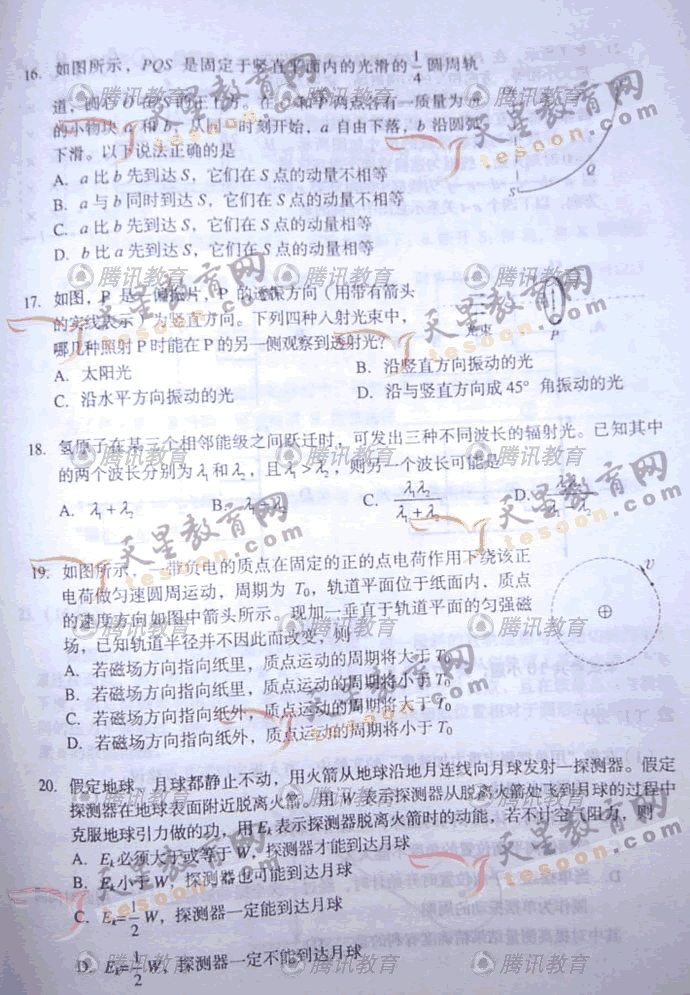 16. 如图所示，PQS 是固定于竖直平面内的光滑的 1/4 圆周轨
道，圆心 O 在 S 的正上方。在 O 和 P 两点各有一质量为 m
的小物块 a 和 b，从同一时刻开始，a 自由下落，b 沿圆弧
下滑。以下说法正确的是
A. a 比 b 先到达 S，它们在 S 点的动量不相等
B. a 与 b 同时到达 S，它们在 S 点的动量不相等
C. a 比 b 先到达 S，它们在 S 点的动量相等
D. b 比 a 先到达 S，它们在 S 点的动量相等
S Q
17. 如图，P 是一偏振片，P 的透振方向（用带有箭头
的实线表示）为竖直方向。下列四种入射光束中，
哪几种照射 P 时能在 P 的另一侧观察到透射光？
光束 P
A. 太阳光 B. 沿竖直方向振动的光
C. 沿水平方向振动的光 D. 沿与竖直方向成 45° 角振动的光
18. 氢原子在某三个相邻能级之间跃迁时，可发出三种不同波长的辐射光。已知其中
的两个波长分别为 λ₁ 和 λ₂，且 λ₁＞λ₂，则另一个波长可能是
A. λ₁+λ₂ B. λ₁−λ₂ C. λ₁λ₂/(λ₁+λ₂) D. λ₁λ₂/(λ₁−λ₂)
19. 如图所示，一带负电的质点在固定的正的点电荷作用下绕该正
电荷做匀速圆周运动，周期为 T₀，轨道平面位于纸面内，质点
的速度方向如图中箭头所示。现加一垂直于轨道平面的匀强磁
场，已知轨道半径并不因此而改变，则
υ
A. 若磁场方向指向纸里，质点运动的周期将大于 T₀
B. 若磁场方向指向纸里，质点运动的周期将小于 T₀
C. 若磁场方向指向纸外，质点运动的周期将大于 T₀
D. 若磁场方向指向纸外，质点运动的周期将小于 T₀
20. 假定地球、月球都静止不动，用火箭从地球沿地月连线向月球发射一探测器。假定
探测器在地球表面附近脱离火箭。用 W 表示探测器从脱离火箭处飞到月球的过程中
克服地球引力做的功，用 Eₖ 表示探测器脱离火箭时的动能，若不计空气阻力，则
A. Eₖ 必须大于或等于 W，探测器才能到达月球
B. Eₖ 小于 W，探测器也可能到达月球
C. Eₖ=1/2 W，探测器一定能到达月球
D. Eₖ=1/2 W，探测器一定不能到达月球
腾讯教育
天星教育网
tesoon.com